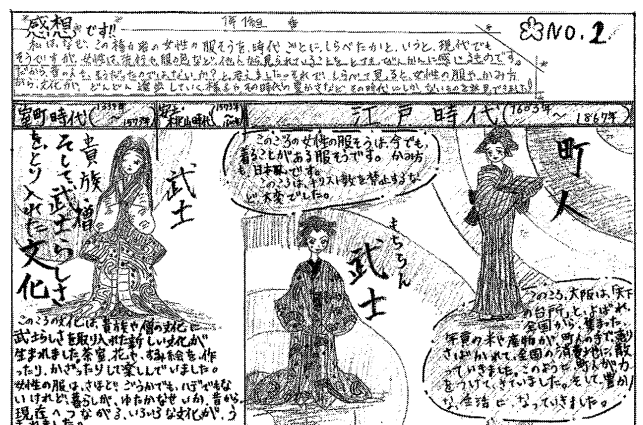 感想です!!
NO.1
私は、なぜ、この権力者の女性の服そうを、時代ごとに、しらべたかと、いうと、現代でも
そうですが、女性は流行や服の色など、他人から見られていることを、とても、びんかんに感じるものです。
だから昔の人も、そうだったのではないか?と考えました。それで、しらべて見ると、女性の服や、かみ方
から、文化が、どんどん進歩していく様子や、その時代の豊かさなど その時代にしかないものを発見できました!
室町時代(1338年~1573年)
安土・桃山時代
江戸時代(1603年~1867年)
貴族・僧
そして武士らしさ
をとり入れた文化
武士
このころの文化は、貴族や僧の文化に
武士らしさを取り入れた新しい文化が
生まれました。茶室、花や、すみ絵を、作
ったり、かざったりして楽しんでいました。
女性の服は、さほど、ごうかでも、ハデでもな
いけれど、暮らしが、ゆたかなせいか、昔から、
現在へつながる、いろいろな文化が、う
まれました。
このころの女性の服そうは、今でも、
着ることがある服そうです。かみ方
も、日本風です。
このころは、キリスト教を禁止するな
ど大変でした。
もちろん
武士
町人
このころ、大阪は、「天下
の台所」と、よばれ、
全国から、集まった
年貢の米や産物が、町人の手で売り
さばかれて、全国の消費地に、散
っていきました。このように町人が力
をつけて、きていました。そして、豊か
な、生活に、なっていきました。